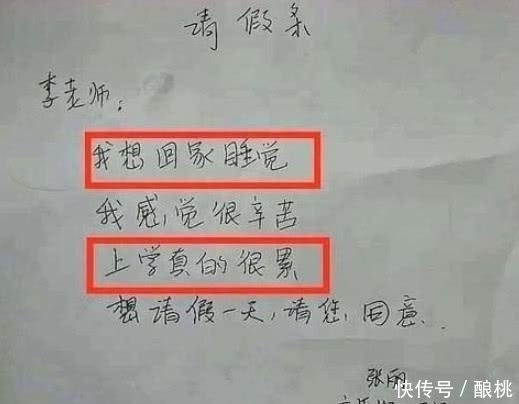 请假条
李老师：
我想回家睡觉
我感觉很辛苦
上学真的很累
想请假一天，请您，同意．
张丽
快传号/酿桃